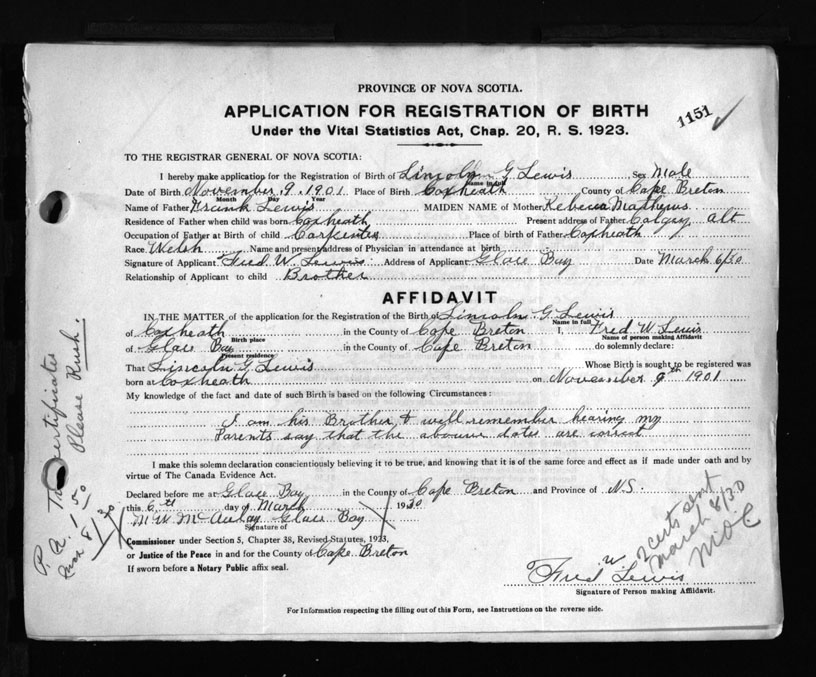 PROVINCE OF NOVA SCOTIA.
APPLICATION FOR REGISTRATION OF BIRTH
1151 ✓
Under the Vital Statistics Act, Chap. 20, R. S. 1923.
TO THE REGISTRAR GENERAL OF NOVA SCOTIA:
I hereby make application for the Registration of Birth of Lincoln G Lewis Sex Male
Name in full
Date of Birth November 9 1901 Place of Birth Coxheath County of Cape Breton
Month Day Year
Name of Father Frank Lewis MAIDEN NAME of Mother Rebecca Mathews
Residence of Father when child was born Coxheath Present address of Father Calgry Alt
Occupation of Father at Birth of child Carpenter Place of birth of Father Coxheath
Race Welsh Name and present address of Physician in attendance at birth
Signature of Applicant Fred W Lewis Address of Applicant Glace Bay Date March 6/30
Relationship of Applicant to child Brother
AFFIDAVIT
IN THE MATTER of the application for the Registration of the Birth of Lincoln G. Lewis
Name in full
of Coxheath in the County of Cape Breton I, Fred W Lewis
Birth place Name of person making Affidavit
of Glace Bay in the County of Cape Breton do solemnly declare:
Present residence
That Lincoln G Lewis Whose Birth is sought to be registered was
born at Coxheath on November 9th 1901
My knowledge of the fact and date of such Birth is based on the following Circumstances:
I am his Brother & well remember hearing my
Parents say that the above dates are correct
I make this solemn declaration conscientiously believing it to be true, and knowing that it is of the same force and effect as if made under oath and by
virtue of The Canada Evidence Act.
Declared before me at Glace Bay in the County of Cape Breton and Province of N.S.
this 6th day of March 1930
Glace Bay
Signature of
Commissioner under Section 5, Chapter 38, Revised Statutes, 1923,
or Justice of the Peace in and for the County of Cape Breton
If sworn before a Notary Public affix seal.
Fred W Lewis
Signature of Person making Affidavit.
For Information respecting the filling out of this Form, see Instructions on the reverse side.
Certificates
Please Rush.
2 certs sent
March 8/30